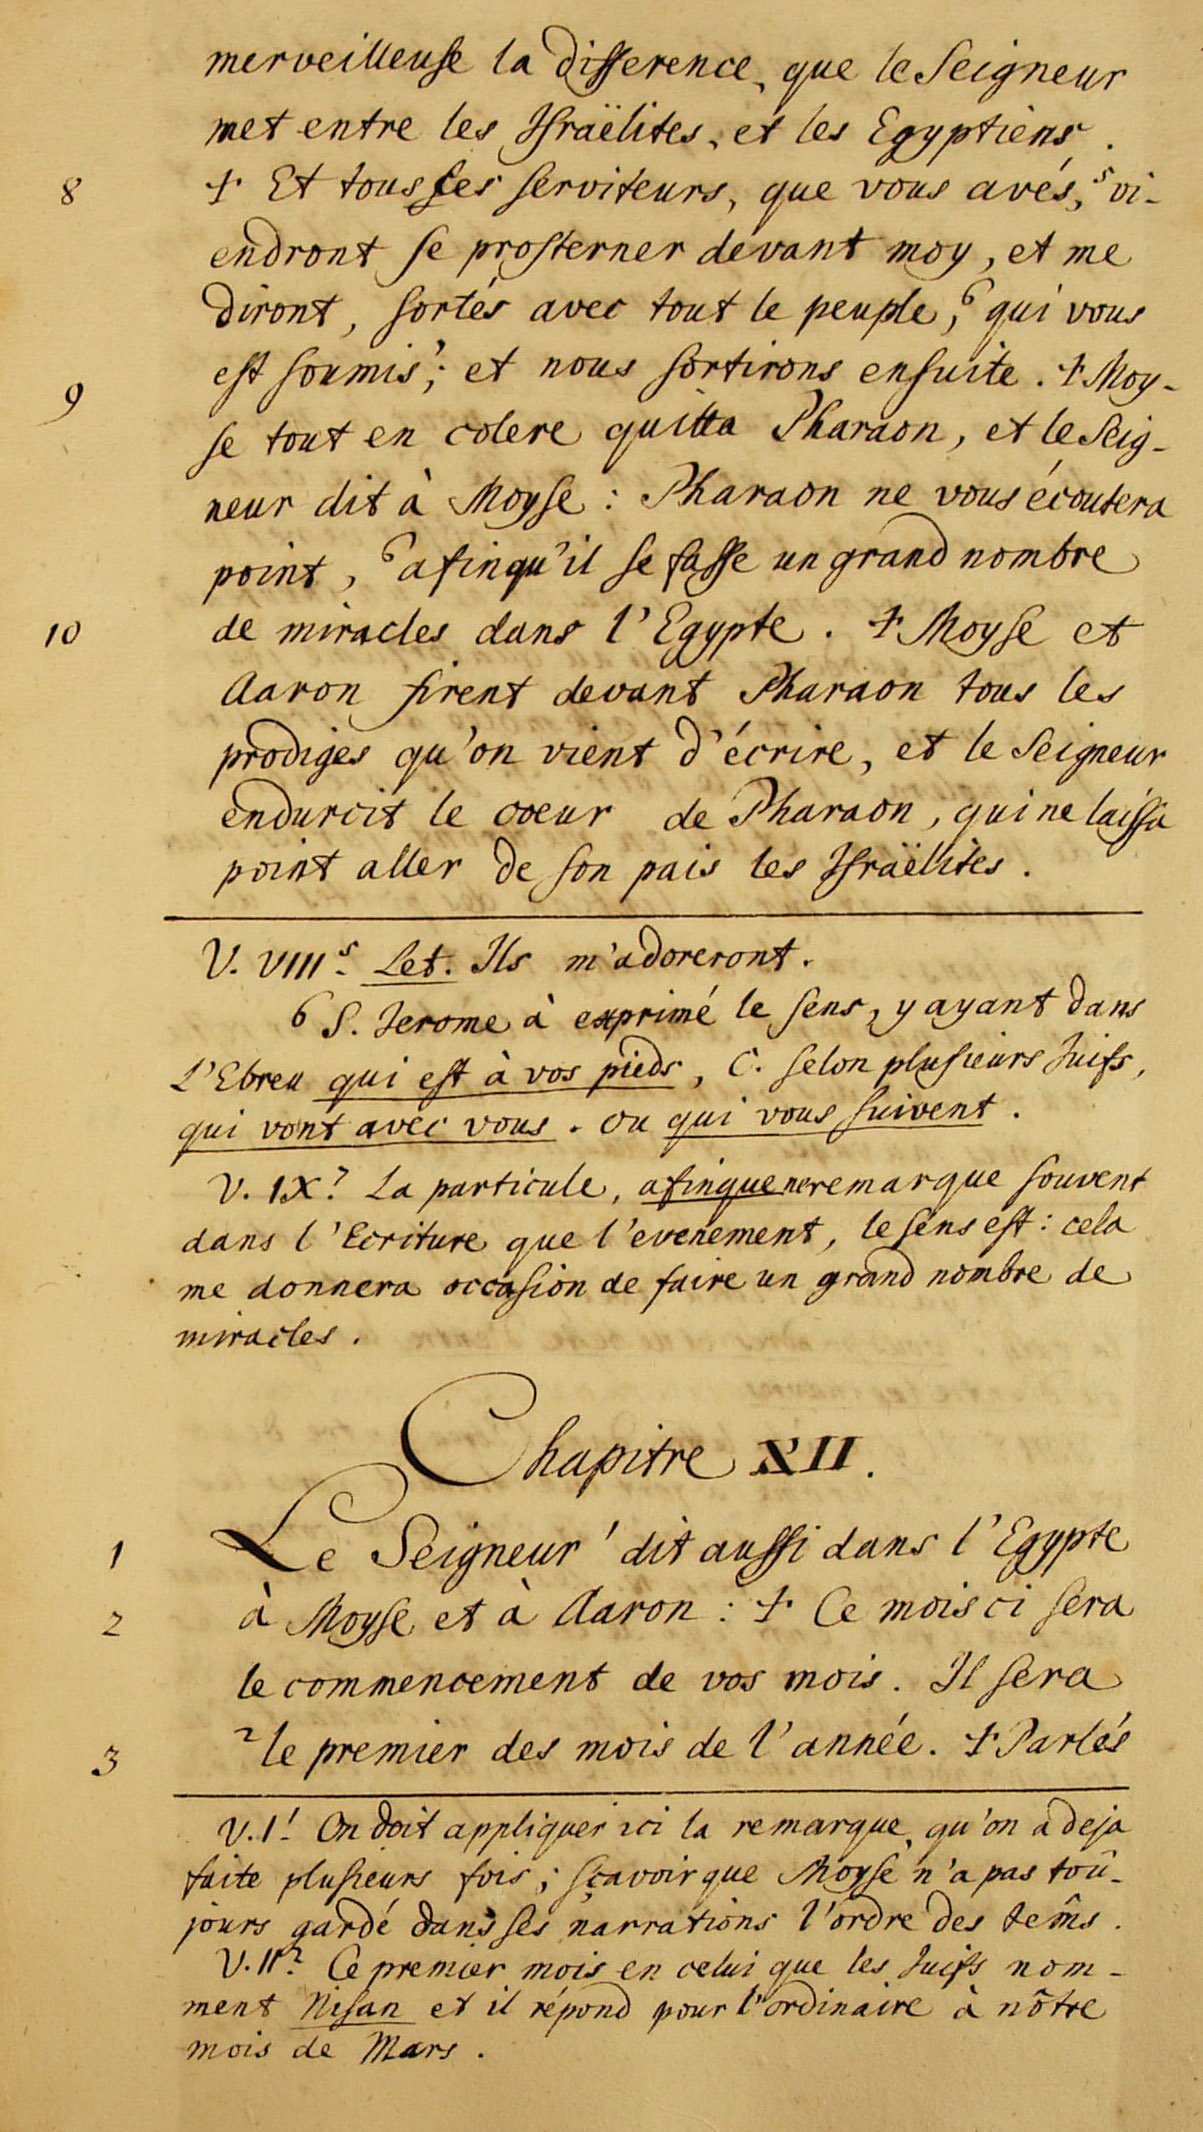 merveilleuse la difference, que le Seigneur
met entre les Israëlites, et les Egyptiens.
8 + Et tous ces serviteurs, que vous avés, ⁵ vi-
endront se prosterner devant moy, et me
diront, sortés avec tout le peuple, ⁶ qui vous
est soumis⁷; et nous sortirons ensuite. + Moy-
9 se tout en colere quitta Pharaon, et le Seig-
neur dit à Moyse : Pharaon ne vous écoutera
point, ⁶ afinqu'il se fasse un grand nombre
10 de miracles dans l'Egypte. + Moyse et
Aaron firent devant Pharaon tous les
prodiges qu'on vient d'écrire, et le Seigneur
endurcit le coeur de Pharaon, qui ne laissa
point aller de son pais les Israëlites.
V. VIII⁵. Let. Ils m'adoreront.
6 S. Jerome à exprimé le sens, y ayant dans
L'Ebreu qui est à vos pieds, C. selon plusieurs Juifs,
qui vont avec vous. ou qui vous suivent.
V. IX⁷. La particule, afinque ne remarque souvent
dans l'Ecriture que l'evenement, le sens est : cela
me donnera occasion de faire un grand nombre de
miracles.
Chapitre XII.
1 Le Seigneur ¹ dit aussi dans l'Egypte
2 à Moyse et à Aaron : + Ce mois ci sera
le commencement de vos mois. Il sera
3 ² le premier des mois de l'année. + Parlés
V. I¹. On doit appliquer ici la remarque, qu'on a deja
faite plusieurs fois; sçavoir que Moyse n'a pas toû-
jours gardé dans ses narrations l'ordre des tem̂s.
V. II². Ce premier mois en celui que les Juifs nom-
ment Nisan et il répond pour l'ordinaire à nôtre
mois de Mars.